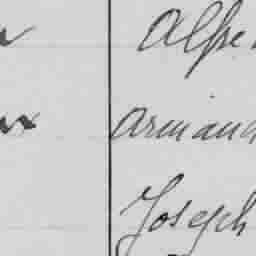 Alfre
Armand
Joseph